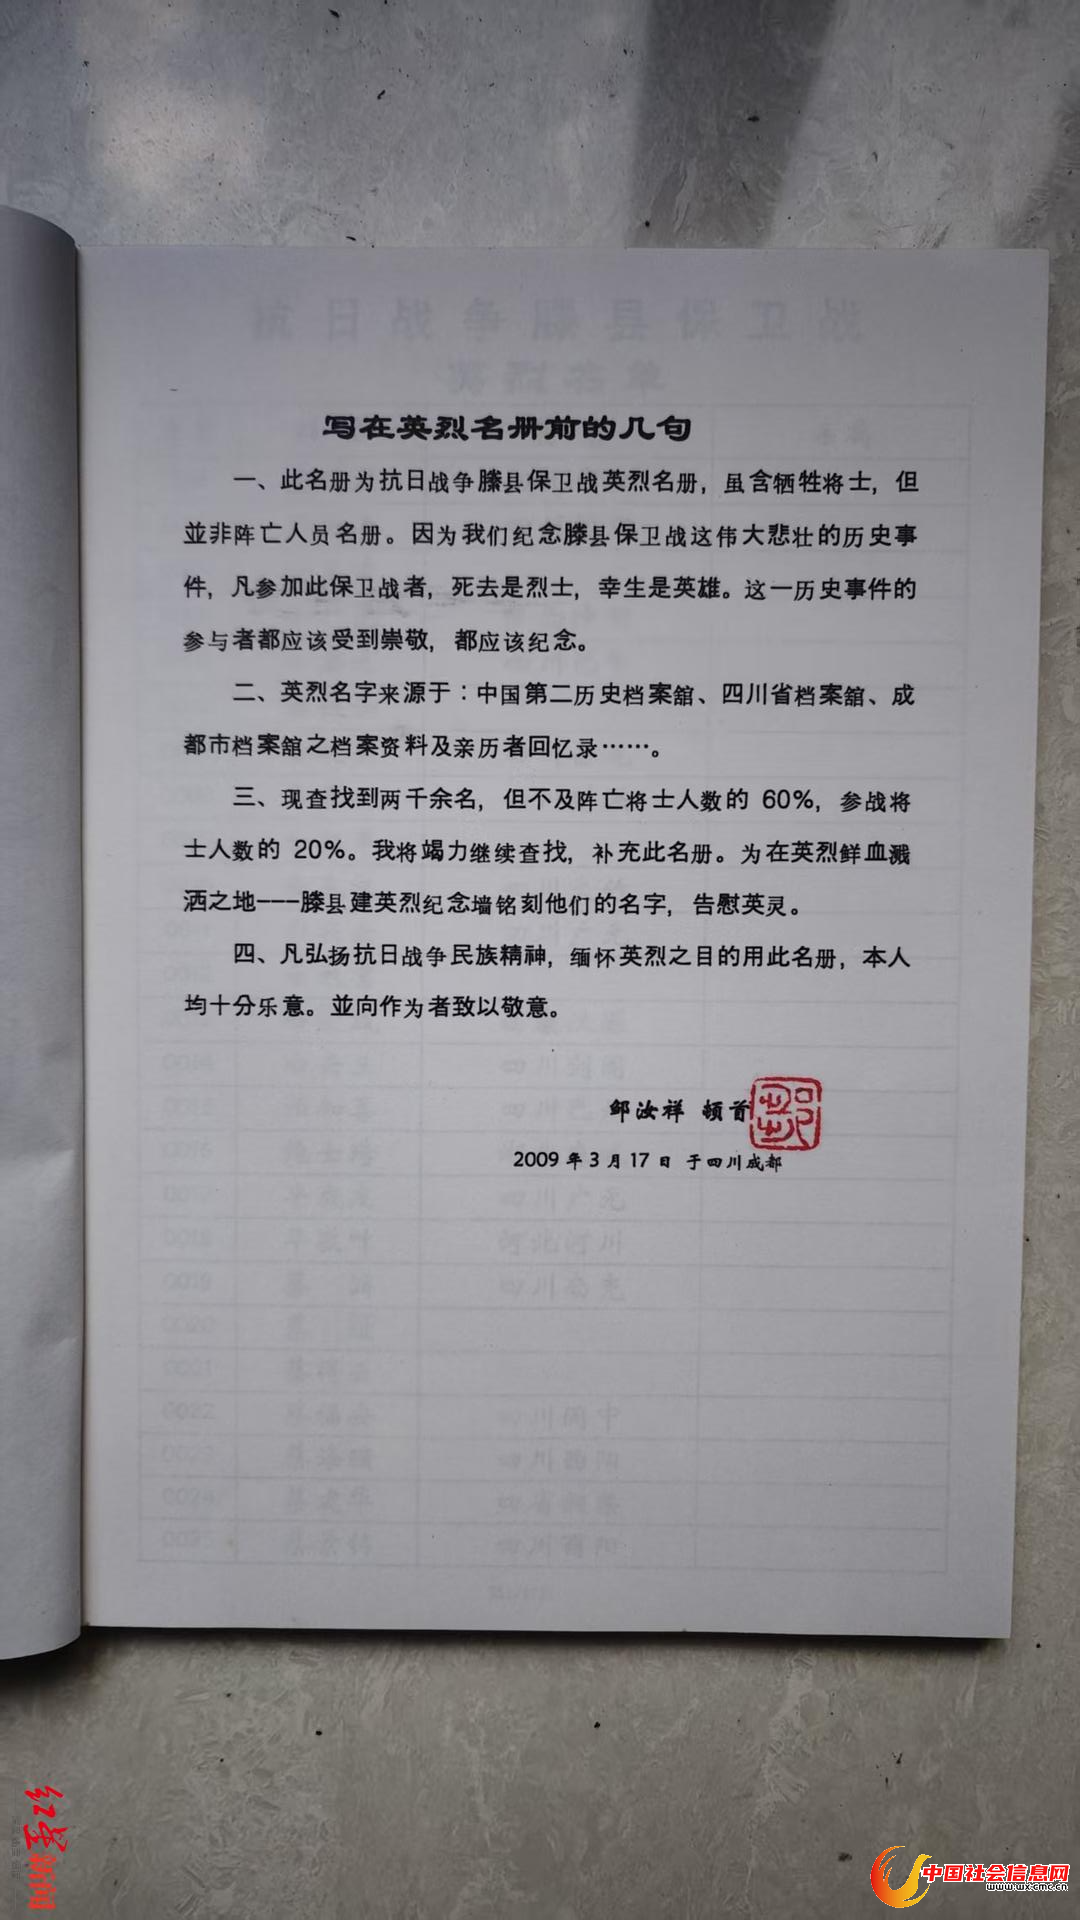 抗日战争滕县保卫战
英烈名单
写在英烈名册前的几句
一、此名册为抗日战争滕县保卫战英烈名册，虽含牺牲将士，但
並非阵亡人员名册。因为我们纪念滕县保卫战这伟大悲壮的历史事
件，凡参加此保卫战者，死去是烈士，幸生是英雄。这一历史事件的
参与者都应该受到崇敬，都应该纪念。
二、英烈名字来源于：中国第二历史档案舘、四川省档案舘、成
都市档案舘之档案资料及亲历者回忆录……。
三、现查找到两千余名，但不及阵亡将士人数的 60%，参战将
士人数的 20%。我将竭力继续查找，补充此名册。为在英烈鲜血溅
洒之地---滕县建英烈纪念墙铭刻他们的名字，告慰英灵。
四、凡弘扬抗日战争民族精神，缅怀英烈之目的用此名册，本人
均十分乐意。並向作为者致以敬意。
邹汝祥 顿首
2009 年 3 月 17 日 于四川成都
0016
四川广元
0018 河北河川
0019
0020
0021
0022 四川阆中
0023
0024
0025 四川酉阳
红星新闻
中国社会信息网
www.wxcmc.cn